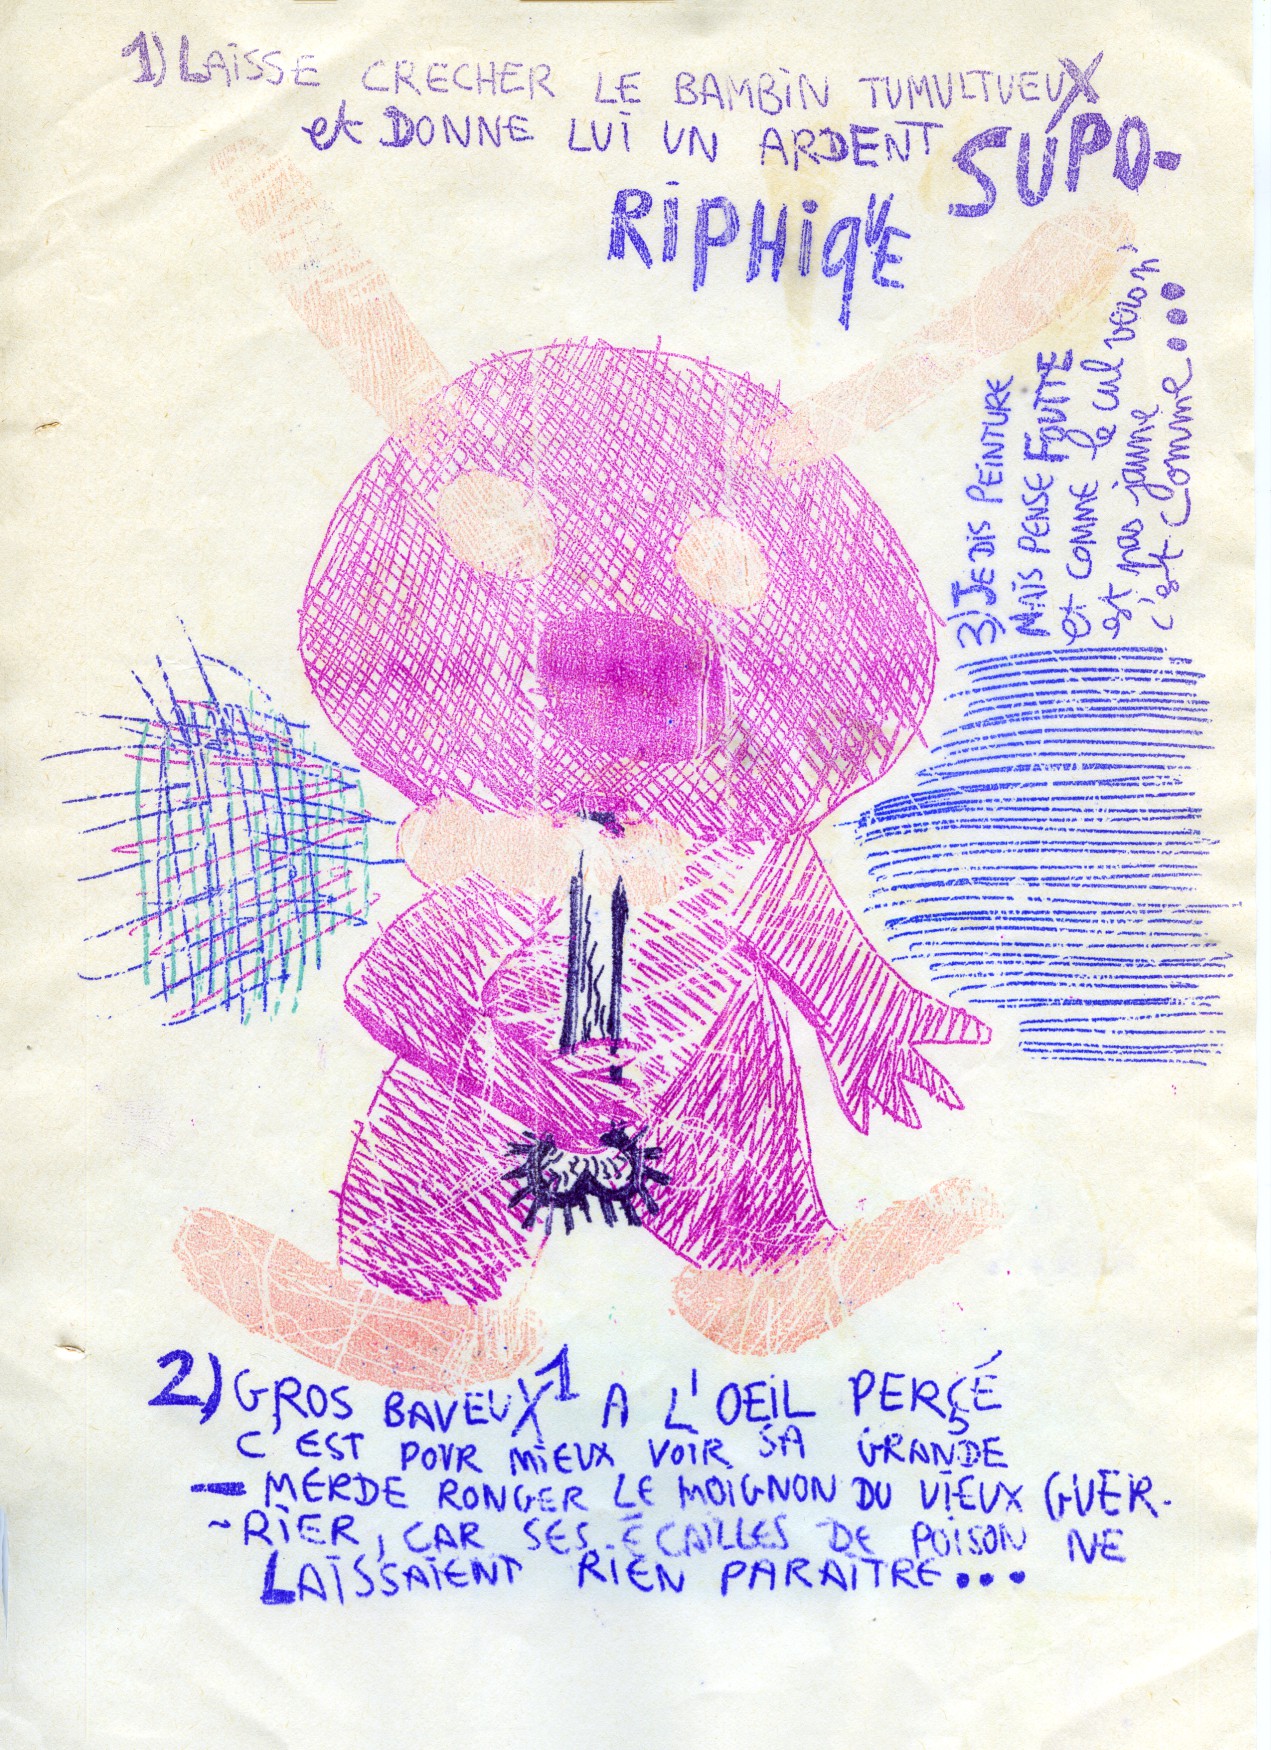 1) LAÏSSE CRECHER LE BAMBIN TUMULTUEUX
et DONNE LUI UN ARDENT SUPO-
RIPHIQUE
3) JE DIS PEINTURE
MAÏS PENSE FOUTTE
et COMME le cul véron
est pas jaune
c'est comme....
2) GROS BAVEUX1 A L'OEIL PERÇÉ
C EST POUR MIEUX VOIR SA GRANDE
— MERDE RONGER LE MOIGNON DU VIEUX GUER-
~RIER, CAR SES ECAILLES DE POISON NE
LAÏSSAIENT RIEN PARAITRE...